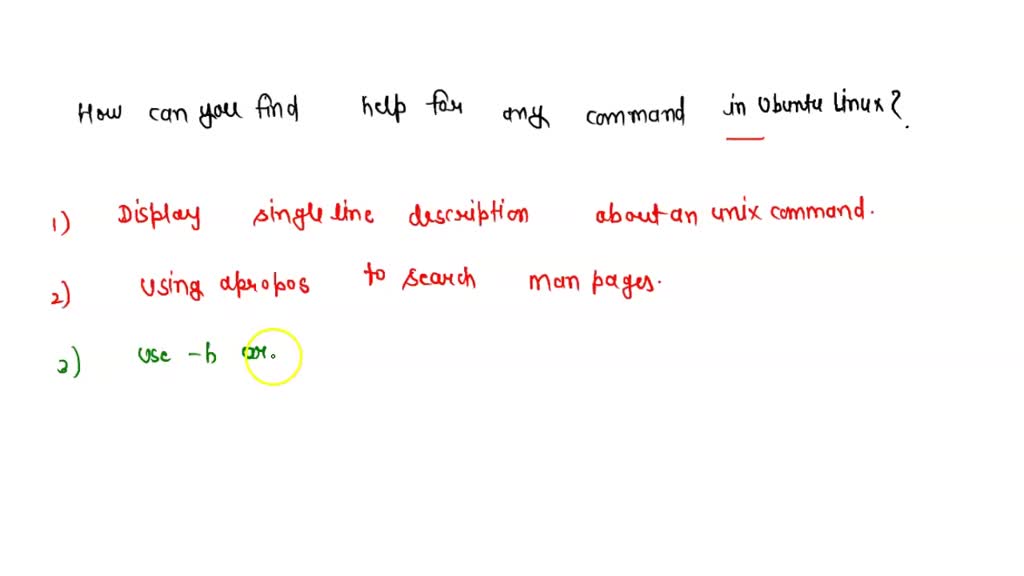 How can you find help for any command in Ubuntu Linux?
1) Display single line description about an unix command.
2) using apropos to search man pages.
3) use -h or.